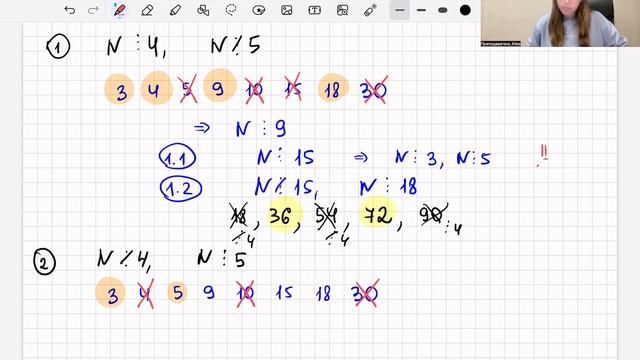 ① N ⋮ 4, N ⋮̸ 5
3 4 5 9 10 15 18 30
⇒ N ⋮ 9
1.1 N ⋮ 15 ⇒ N ⋮ 3, N ⋮ 5 !!
1.2 N ⋮̸ 15, N ⋮ 18
18, 36, 54, 72, 90
⋮̸ 4 ⋮̸ 4 ⋮̸ 4
② N ⋮̸ 4, N ⋮ 5
3 4 5 9 10 15 18 30